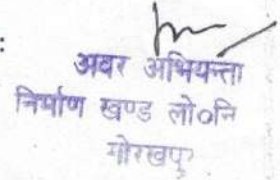 :
अवर अभियन्ता
निर्माण खण्ड लो०नि
गोरखपु